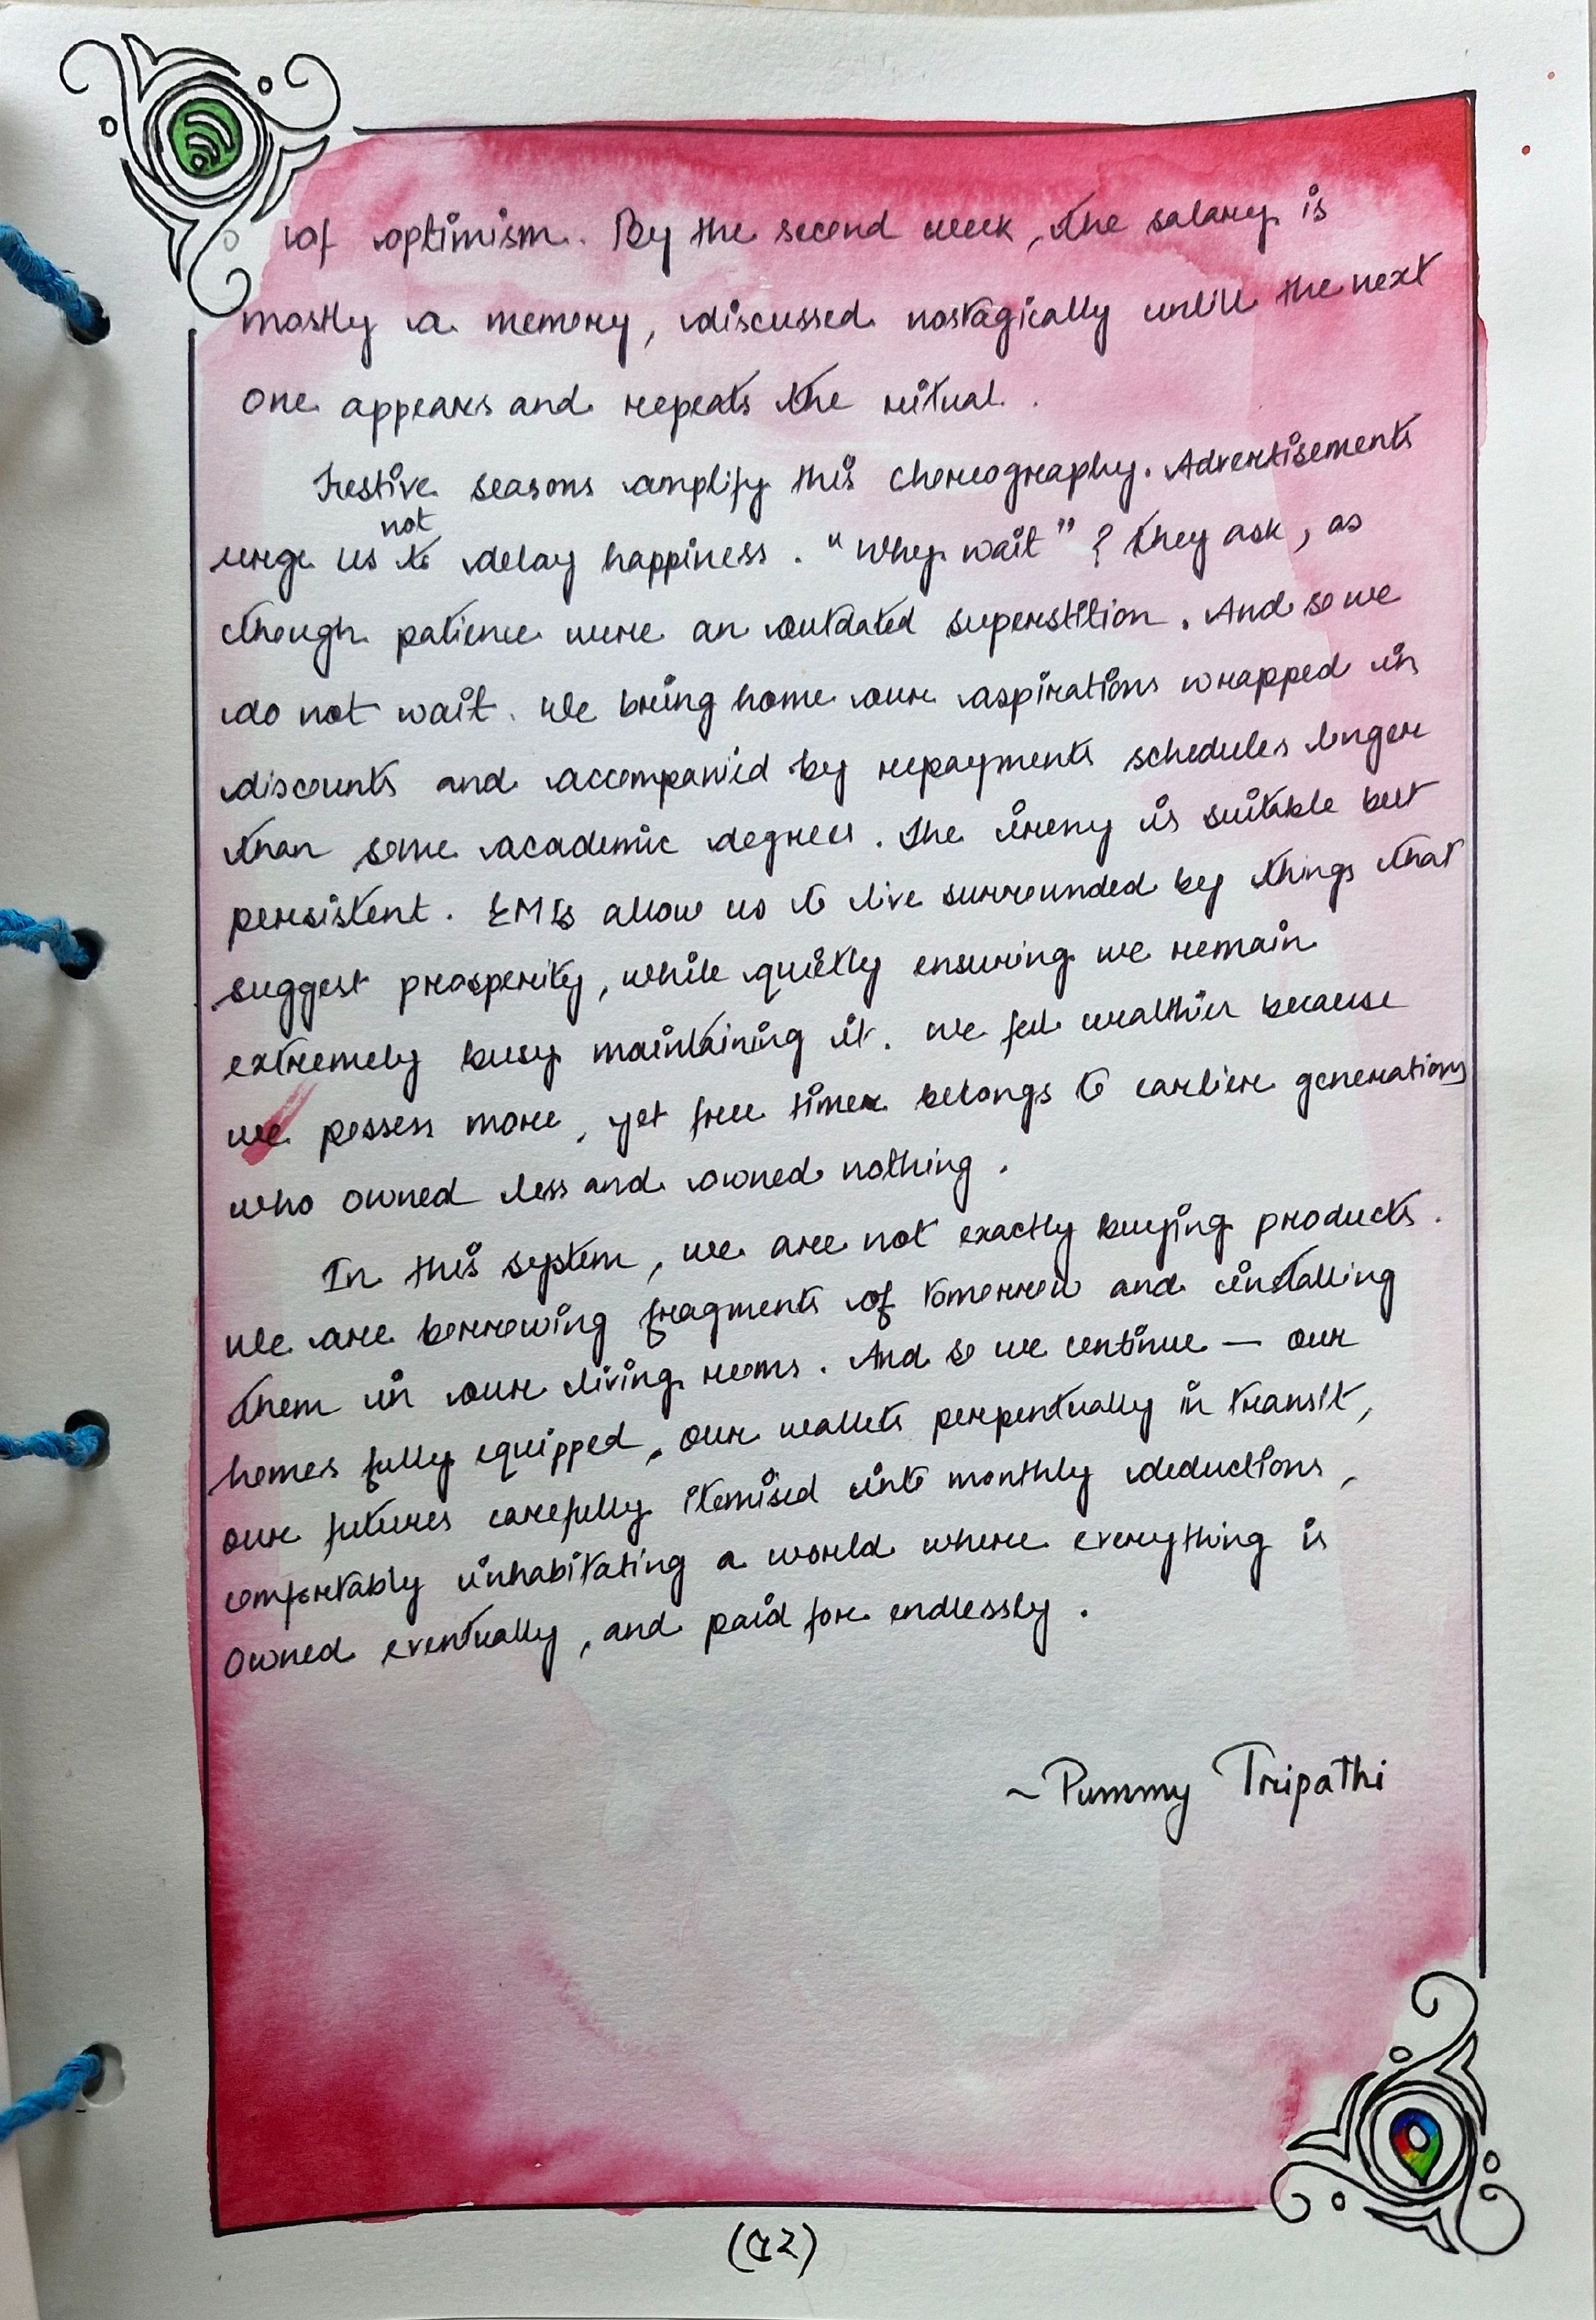 of optimism. By the second week, the salary is
mostly a memory, discussed nostagically untill the next
one appears and repeats the ritual.
Festive seasons amplify this choreography. Advertisements
urge us not to delay happiness. "Why wait"? they ask, as
though patience were an outdated superstition. And so we
do not wait. We bring home our aspirations wrapped in
discounts and accompanied by repayments schedules longer
than some academic degrees. The irony is suitable but
persistent. EMIs allow us to live surrounded by things that
suggest prosperity, while quietly ensuring we remain
extremely busy maintaining it. We feel wealthier because
we possess more, yet free time belongs to earlier generations
who owned less and owned nothing.
In this system, we are not exactly buying products.
We are borrowing fragments of tomorrow and installing
them in our living rooms. And so we continue — our
homes fully equipped, our wallets perpentually in transit,
our futures carefully itemised into monthly deductions,
comfortably inhabitating a world where everything is
owned eventually, and paid for endlessly.
~Pummy Tripathi